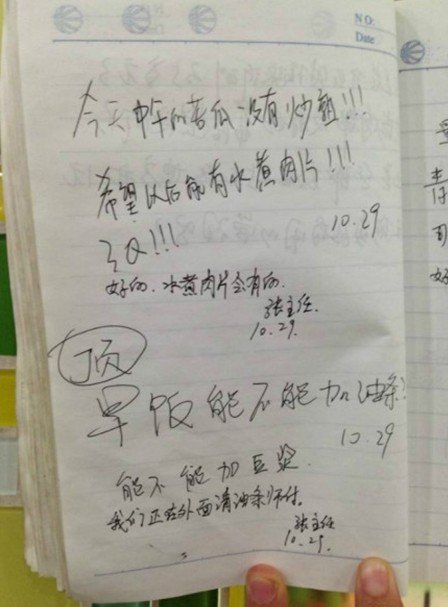 NO:
Date
今天中午的苦瓜没有炒熟!!!
希望以后能有水煮肉片!!!
10.29
好的. 水煮肉片会有的.
张主任.
10.29.
顶
早饭能不能加油条?
10.29
能不能加豆浆.
我们正在外面请油条师付.
张主任
10.29.